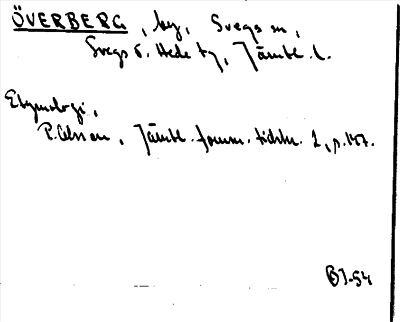 ÖVERBERG, by, Svegs sn,
Svegs o. Hede tg, Jämtl. l.
Etymologi,
P. Olsson, Jämtl. fornm. tidskr. 2, p. 147.
BJ-54